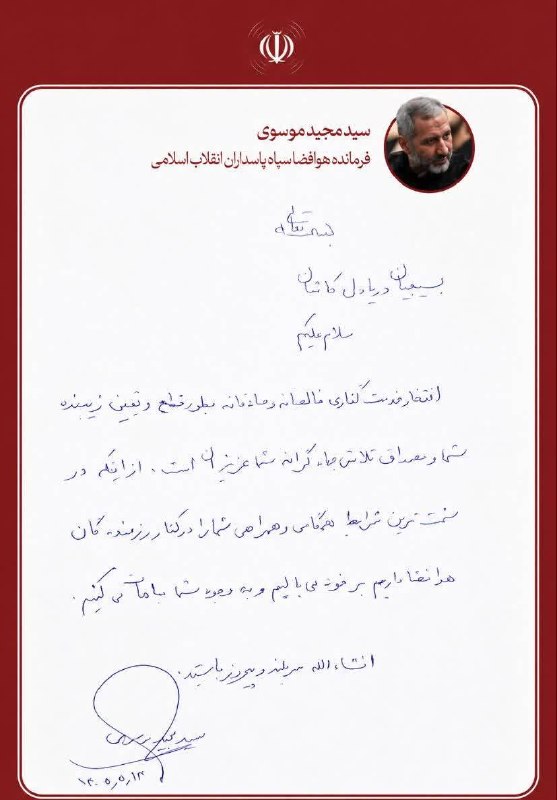 سیدمجیدموسوی
فرمانده هوافضا سپاه پاسداران انقلاب اسلامی
بسمه تعالی
بسیجیان دریادل کاشان
سلام علیکم
افتخار خدمت گذاری خالصانه و صادقانه بطور قطع و یقین زیبنده
شما و مصداق تلاش جهادگرانه شما عزیزان است. از اینکه در
سخت ترین شرایط همگامی و همراهی شما را در کنار رزمندگان
هوافضا داریم بر خود می بالیم و به وجود شما مباهات می کنیم.
انشاء الله سربلند و پیروز باشید.
سید مجید موسوی
۱۴۰۵٫۵٫۱۳